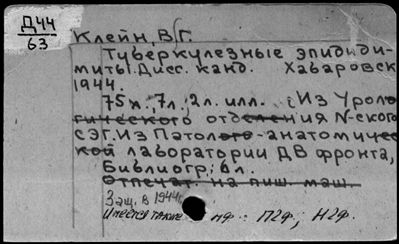 Д44
63
Клейн, В.Г.
Туберкулезные эпидиди-
миты. Дисс. канд. Хабаровск
1944.
75 л., 7 л., 2 л. илл. (Из Уроло-
гического отделения N-ского
СЭГ. Из Патолого-анатомичес-
кой лаборатории ДВ фронта,
Библиогр.; 6 л.
Отпечат. на пиш. маш.
Защ. в 1944г
Имеется также нф: П2ф; Н2ф.